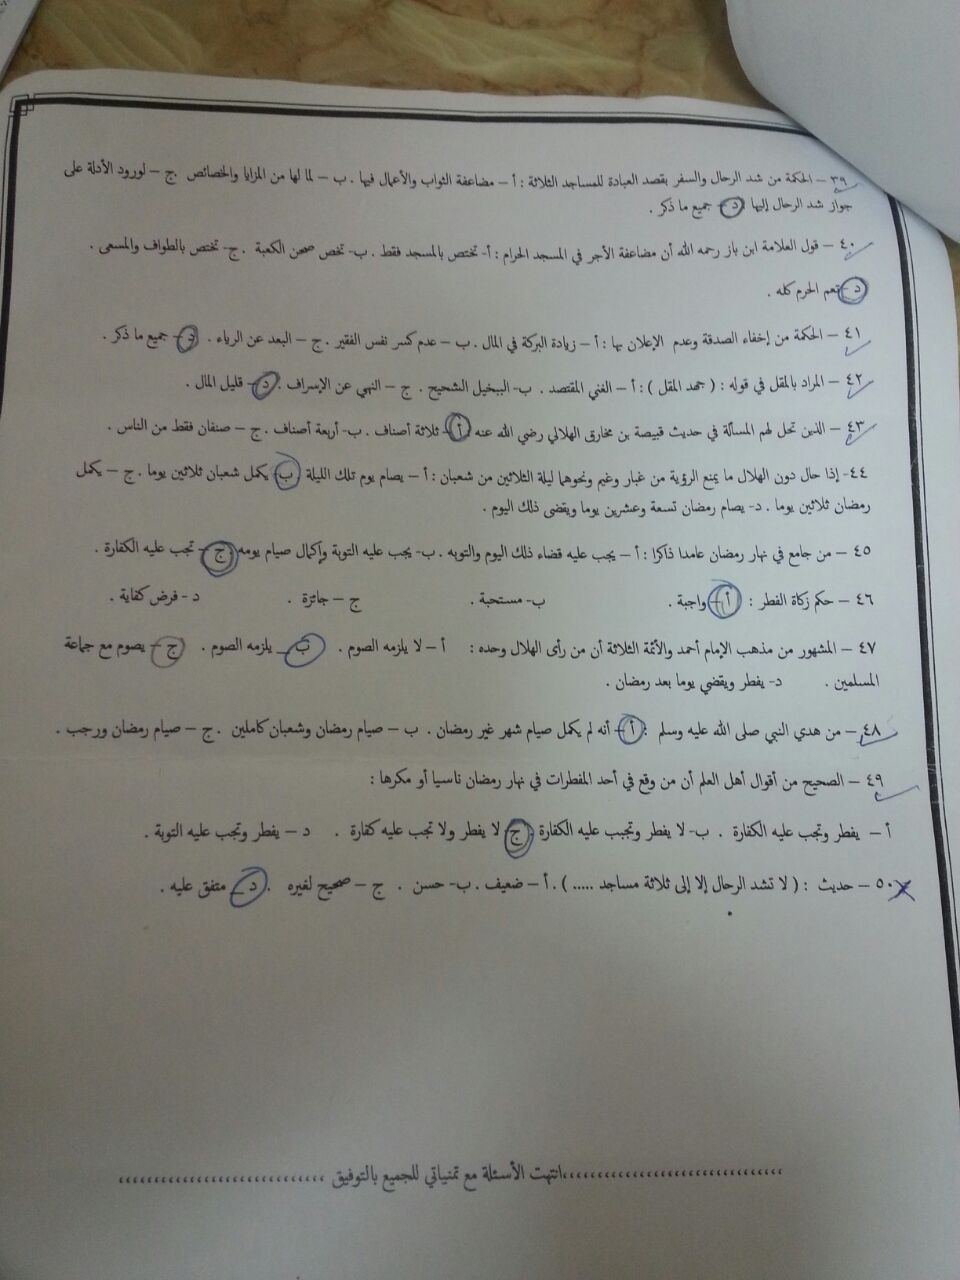 ٣٩ – الحكمة من شد الرحال والسفر بقصد العبادة للمساجد الثلاثة : أ – مضاعفة الثواب والأعمال فيها . ب – لما لها من المزايا والخصائص . ج – لورود الأدلة على
جواز شد الرحال إليها . د – جميع ما ذكر .
٤٠ – قول العلامة ابن باز رحمه الله أن مضاعفة الأجر في المسجد الحرام : أ- تختص بالمسجد فقط . ب- تخص صحن الكعبة . ج- تختص بالطواف والمسعى .
د- تعم الحرم كله .
٤١ – الحكمة من إخفاء الصدقة وعدم الإعلان بها : أ – زيادة البركة في المال . ب – عدم كسر نفس الفقير . ج – البعد عن الرياء . د – جميع ما ذكر .
٤٢ – المراد بالمقل في قوله : ( جهد المقل ) : أ – الغني المقتصد . ب- البخيل الشحيح . ج – النهي عن الإسراف . د – قليل المال .
٤٣ – الذين تحل لهم المسألة في حديث قبيصة بن مخارق الهلالي رضي الله عنه أ – ثلاثة أصناف . ب- أربعة أصناف . ج – صنفان فقط من الناس .
٤٤- إذا حال دون الهلال ما يمنع الرؤية من غبار وغيم ونحوهما ليلة الثلاثين من شعبان : أ – يصام يوم تلك الليلة . ب- يكمل شعبان ثلاثين يوما . ج – يكمل
رمضان ثلاثين يوما . د- يصام رمضان تسعة وعشرين يوما ويقضى ذلك اليوم .
٤٥ – من جامع في نهار رمضان عامدا ذاكرا : أ – يجب عليه قضاء ذلك اليوم والتوبه . ب- يجب عليه التوبة وإكمال صيام يومه . ج – تجب عليه الكفارة .
٤٦ – حكم زكاة الفطر : أ – واجبة . ب- مستحبة . ج – جائزة . د - فرض كفاية .
٤٧ – المشهور من مذهب الإمام أحمد والأئمة الثلاثة أن من رأى الهلال وحده : أ – لا يلزمه الصوم . ب – يلزمه الصوم . ج – يصوم مع جماعة
المسلمين . د- يفطر ويقضي يوما بعد رمضان .
٤٨ – من هدي النبي صلى الله عليه وسلم : أ – أنه لم يكمل صيام شهر غير رمضان . ب – صيام رمضان وشعبان كاملين . ج – صيام رمضان ورجب .
٤٩ – الصحيح من أقوال أهل العلم أن من وقع في أحد المفطرات في نهار رمضان ناسيا أو مكرها :
أ – يفطر وتجب عليه الكفارة . ب- لا يفطر وتجبب عليه الكفارة . ج- لا يفطر ولا تجب عليه كفارة . د – يفطر وتجب عليه التوبة .
٥٠ – حديث : ( لا تشد الرحال إلا إلى ثلاثة مساجد ..... ) . أ – ضعيف . ب- حسن . ج – صحيح لغيره . د – متفق عليه .
،،،،،،،،،،،،،،،،،،،،،،،،،،،،،،،،انتهت الأسئلة مع تمنياتي للجميع بالتوفيق ،،،،،،،،،،،،،،،،،،،،،،،،،،،،،